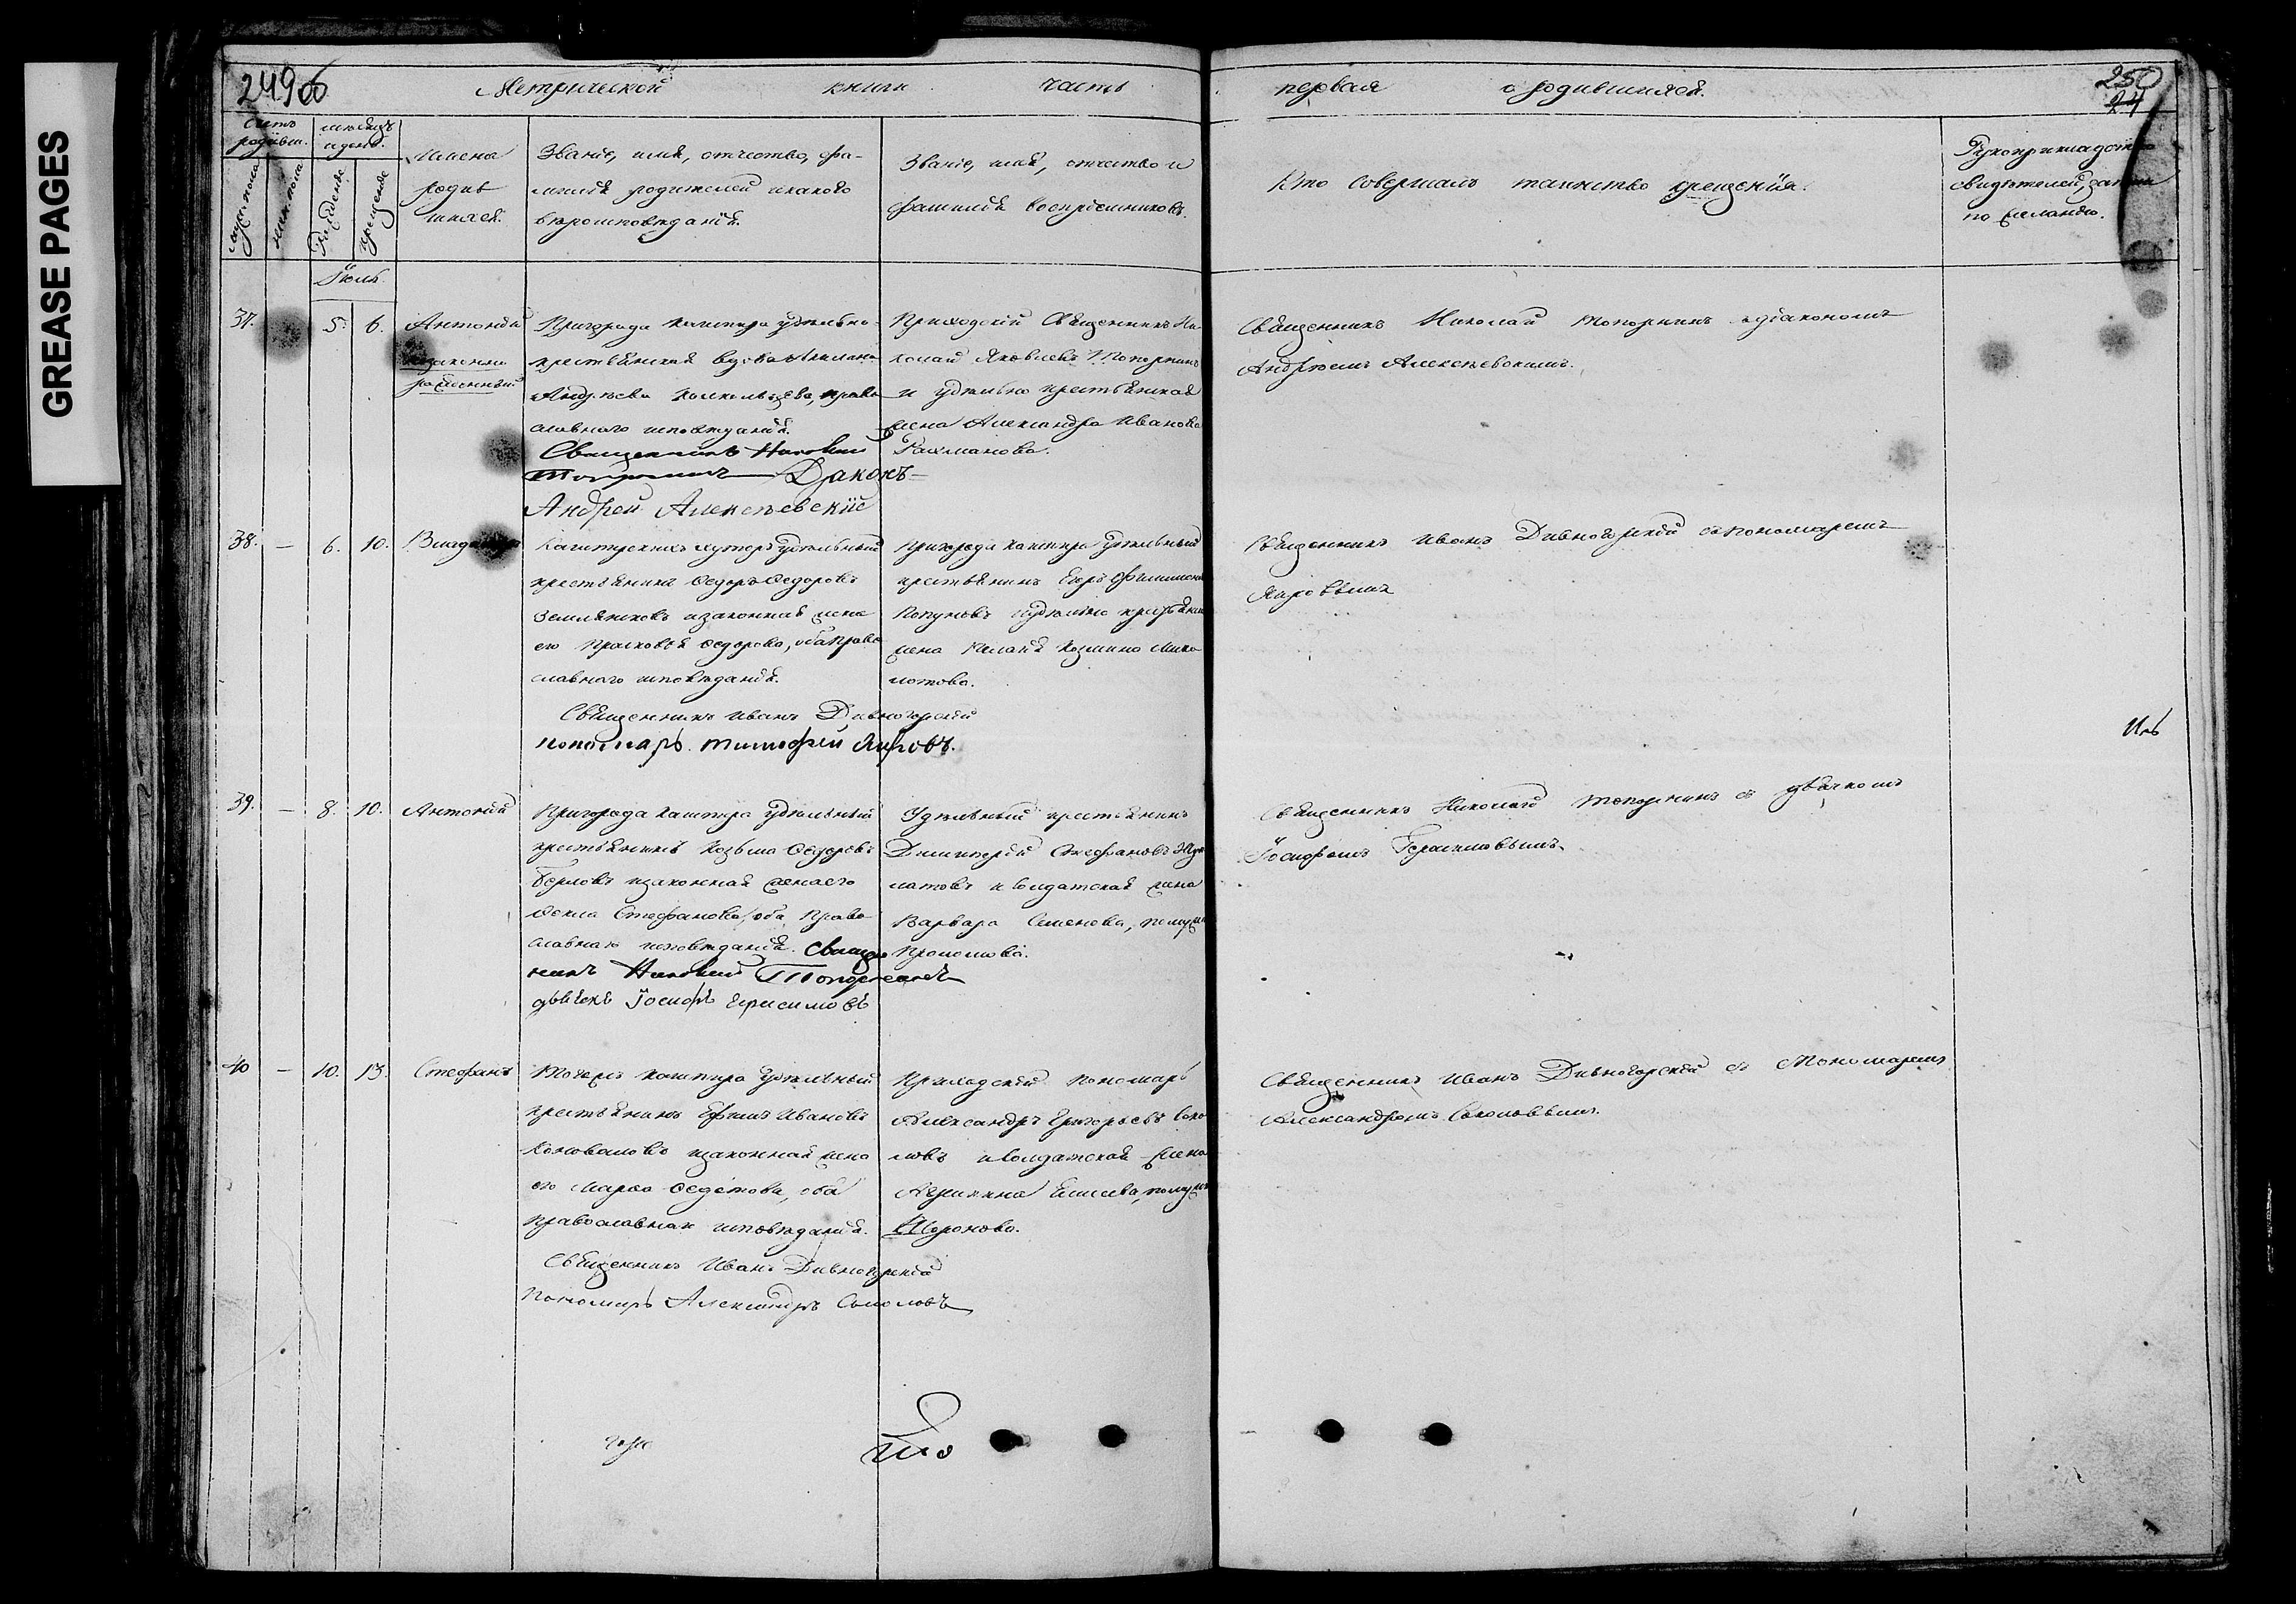 GREASE PAGES
249об
Метрической книги часть первая о родившихся.
250
24
Счетъ родивш.
мѣсяцъ и день.
мужск. пола
женск. пола
Рожденіе
крещеніе
Имена
родив
шихся.
Званіе, имя, отчество, фа-
милія родителей и какого
вѣроисповѣданія.
Званіе, имя, отчество и
фамилія воспріемниковъ.
Кто совершалъ таинство крещенія.
Рукоприкладство
свидѣтелей, записи
по желанію.
Іюль.
37. 5. 6. Антоній
незаконно
рожденный
Пригорода Кашпира удѣльно-
крестьянская вдова
Андреева православнаго исповѣданія.
Священникъ Николай
Топорнинъ Діаконъ
Андрей Алексѣевскій
Приходскій Священникъ Ни-
колай Яковлевъ Топорнинъ
и удѣльно крестьянская
жена Александра Иванова
Рахманова.
Священникъ Николай Топорнинъ съ діакономъ
Андреемъ Алексѣевскимъ.
38. — 6. 10. Владиміръ
Кашпирскихъ хуторъ удѣльный
крестьянинъ Ѳедоръ Ѳедоровъ
Земляниковъ и законная жена
его Прасковья Ѳедорова, оба право
славнаго исповѣданія.
Священникъ Иванъ Дивногорскій
пономарь Тимофей Яировъ.
Пригорода Кашпира удѣльный
крестьянинъ Егоръ
и удѣльно крестьянская
жена Маланья Козмина
Священникъ Иванъ Дивногорскій съ пономаремъ
Яировымъ
39. — 8. 10. Антоній
Пригорода Кашпира удѣльный
крестьянинъ Козьма Ѳедоровъ
и законная жена его
Ѳекла Стефанова, оба право-
славнаго исповѣданія. Священ
никъ Николай Топорнинъ
дьячекъ Іосифъ Герасимовъ
Удѣльный крестьянинъ
Димитрій Стефановъ
и солдатская жена
Варвара Семенова, по мужу
Священникъ Николай Топорнинъ съ дьячкомъ
Іосифомъ Герасимовымъ.
40 — 10. 13. Стефанъ
Тогожъ Кашпира удѣльный
крестьянинъ Ефимъ Ивановъ
Коноваловъ и законная жена
его Марѳа Ѳедотова, оба
православнаго исповѣданія.
Священникъ Иванъ Дивногорскій
Пономарь Александръ Соколовъ
Приходскій пономарь
Александръ Григорьевъ Соко
ловъ и солдатская жена
Акулина Елисева, по мужу
Миронова.
Священникъ Иванъ Дивногорскій съ Пономаремъ
Александромъ Соколовымъ.